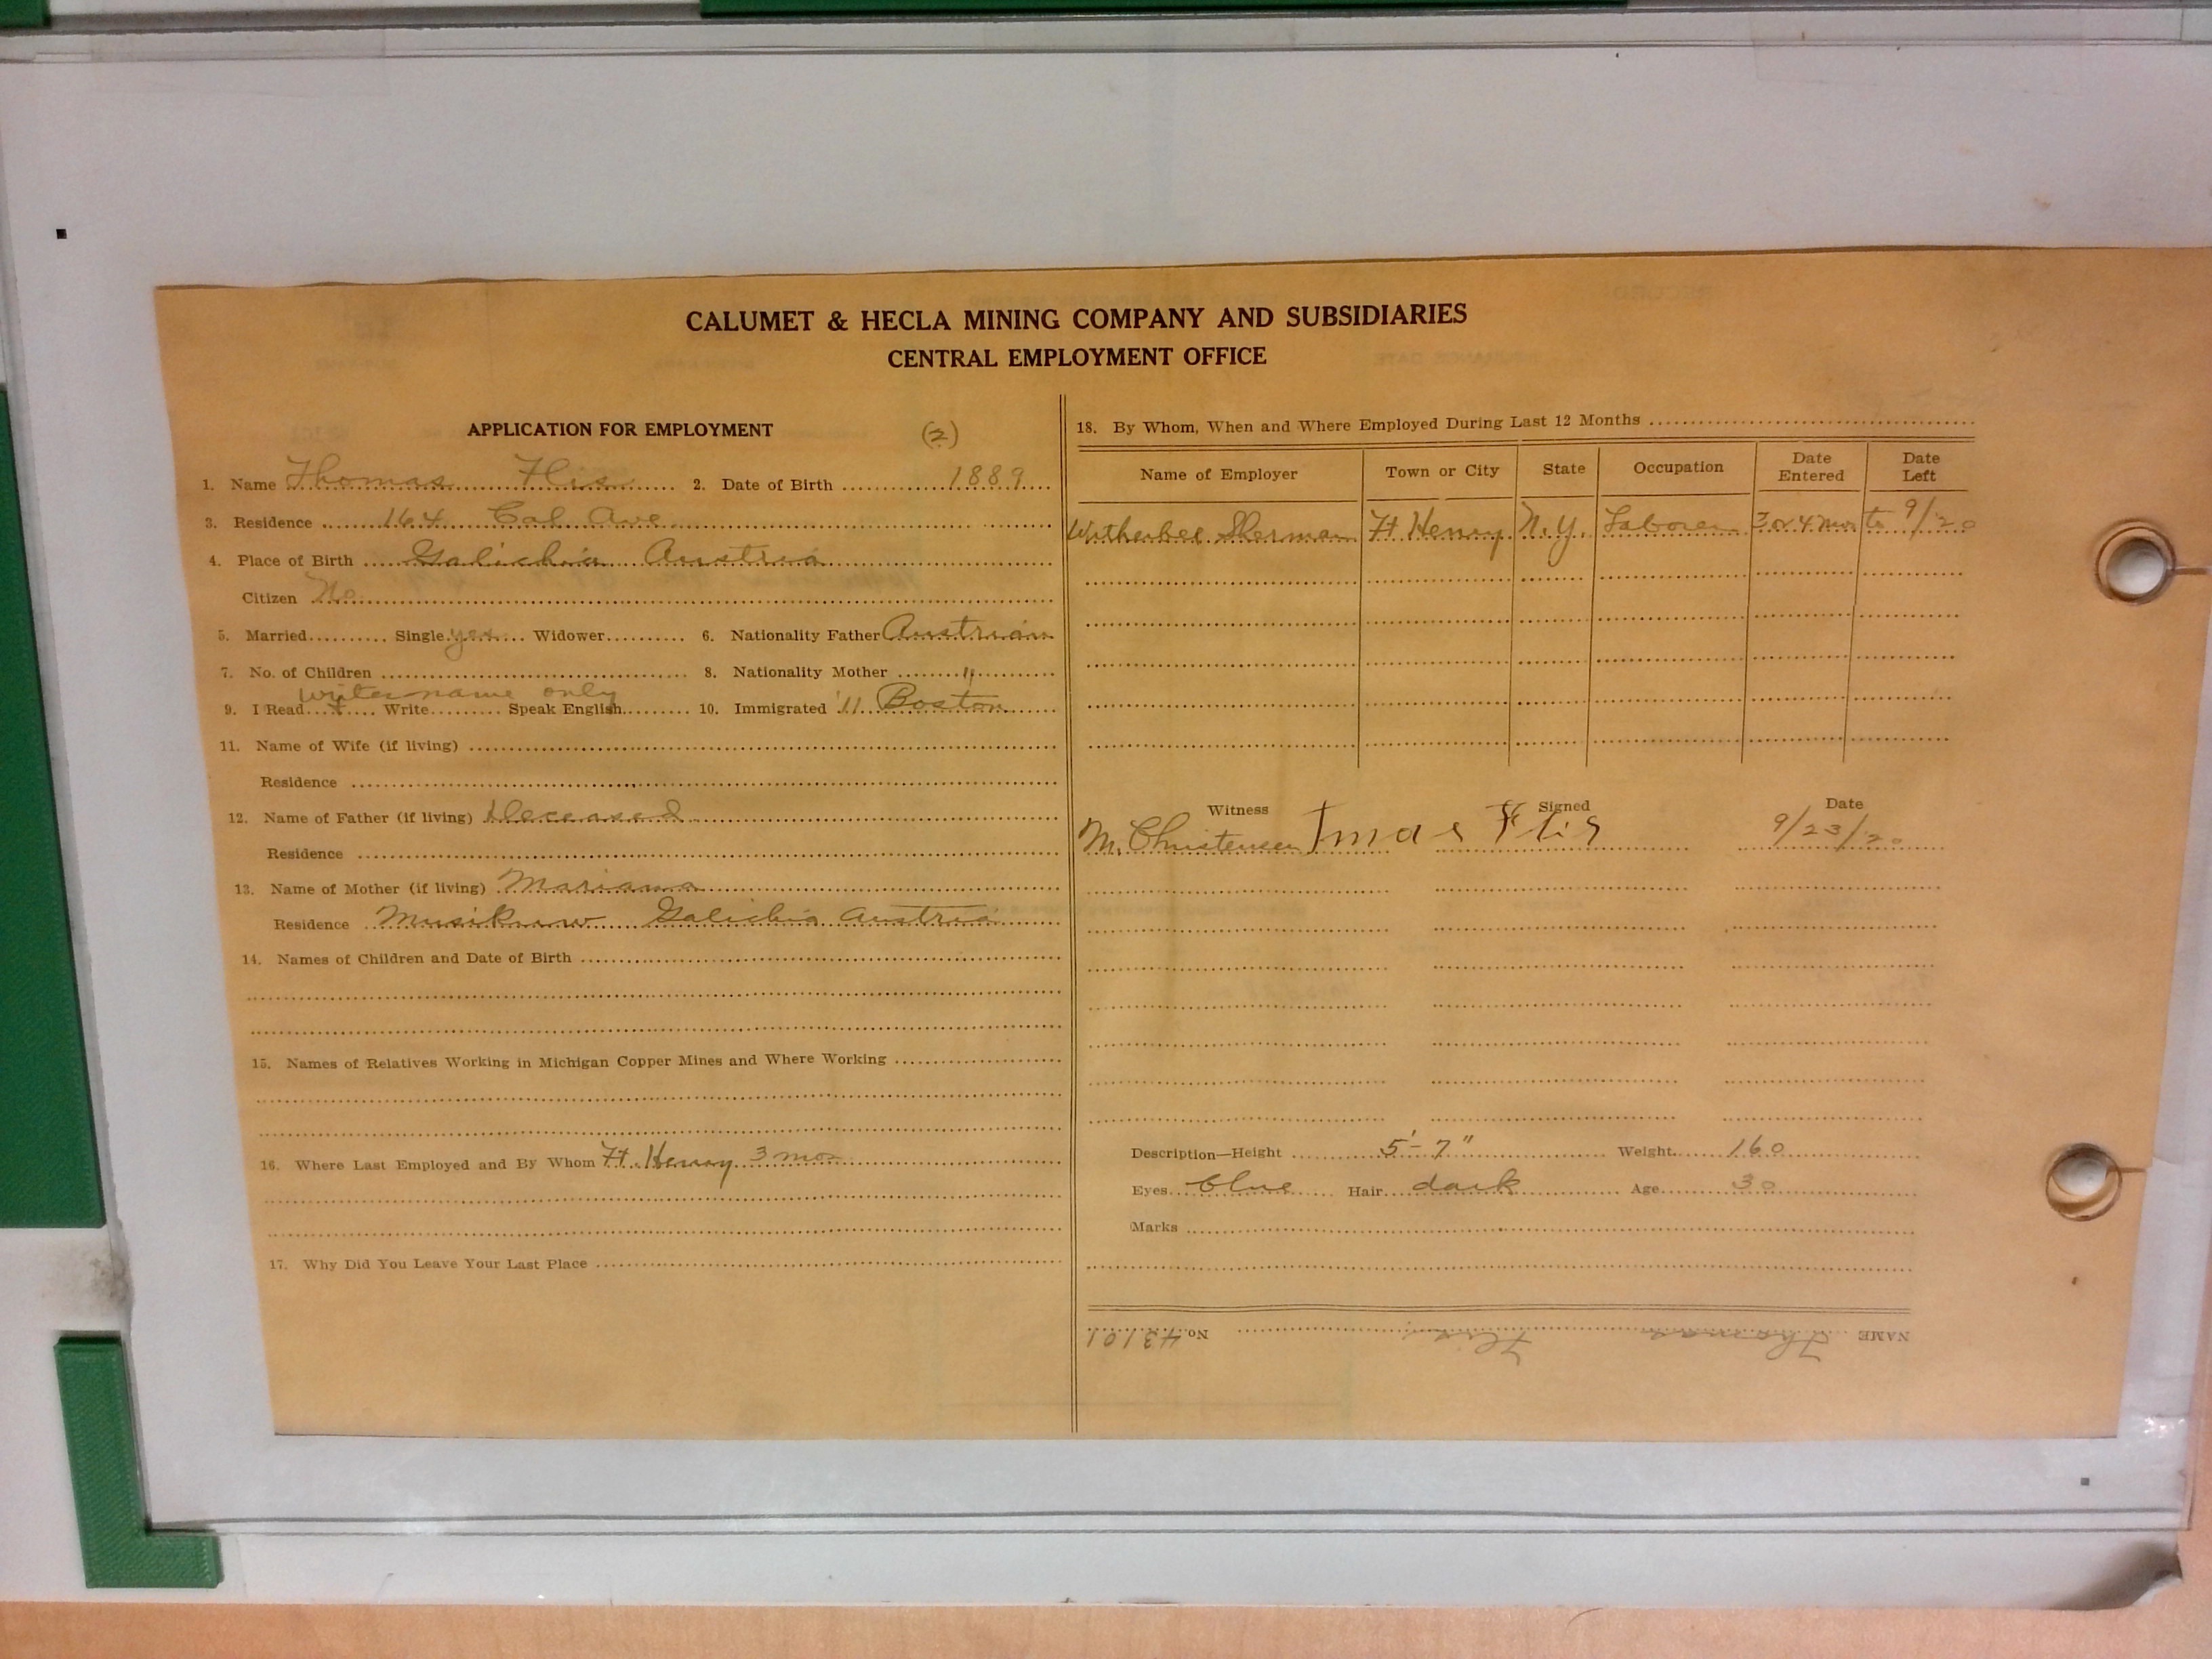 CALUMET & HECLA MINING COMPANY AND SUBSIDIARIES
CENTRAL EMPLOYMENT OFFICE
APPLICATION FOR EMPLOYMENT (2)
1. Name Thomas Flis 2. Date of Birth 1889
3. Residence 164 Cal Ave
4. Place of Birth Galichia Austria
Citizen No
5. Married Single yes Widower 6. Nationality Father Austrian
7. No. of Children 8. Nationality Mother "
writes name only
9. I Read Write Speak English 10. Immigrated '11 Boston
11. Name of Wife (if living)
Residence
12. Name of Father (if living) Deceased
Residence
13. Name of Mother (if living) Mariana
Residence Galichia Austria
14. Names of Children and Date of Birth
15. Names of Relatives Working in Michigan Copper Mines and Where Working
16. Where Last Employed and By Whom Ft. Henry 3 mos
17. Why Did You Leave Your Last Place
18. By Whom, When and Where Employed During Last 12 Months
Name of Employer Town or City State Occupation Date Entered Date Left
Witherbee Sherman Ft Henry N.Y. Laborer 3 or 4 mos to 9/20
Witness Signed Date
M. Christensen Tmas Flis 9/23/20
Description—Height 5'-7" Weight 160
Eyes blue Hair dark Age 30
Marks
NAME Thomas Flis No 43101